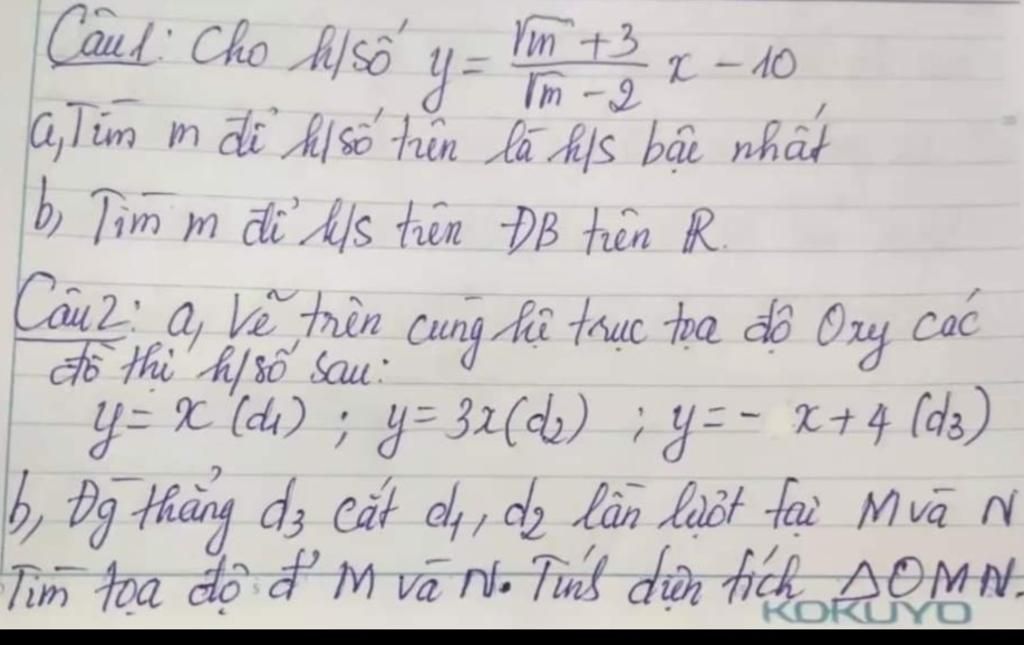 Câu1: Cho h/số y = √m + 3 / √m - 2 x - 10
a, Tìm m để h/số trên là h/s bậc nhất
b, Tìm m để h/s trên ĐB trên R.
Câu2: a, Vẽ trên cùng hệ trục tọa độ Oxy các
đồ thị h/số sau:
y = x (d1) ; y = 3x (d2) ; y = - x + 4 (d3)
b, Đg thẳng d3 cắt d1, d2 lần lượt tại M và N
Tìm tọa độ đ' M và N. Tính diện tích △OMN.
KOKUYO